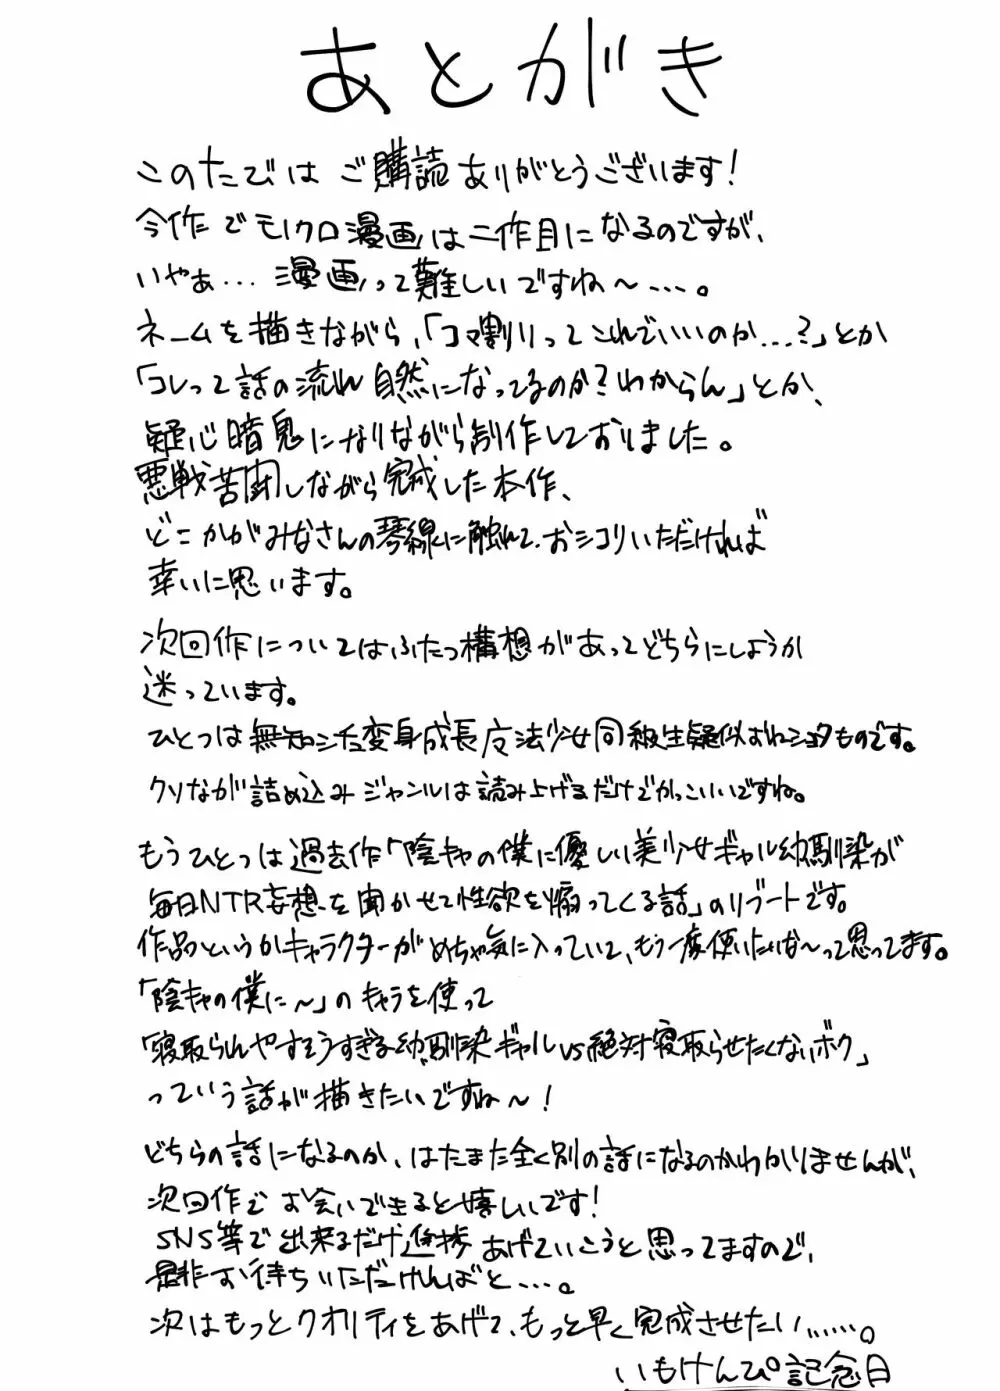 あとがき
このたびは ご購読ありがとうございます！
今作でモノクロ漫画は二作目になるのですが、
いやぁ… 漫画って難しいですね〜…。
ネームを描きながら、「コマ割りってこれでいいのか…？」とか
「コレって話の流れ自然になってるのか？わからん」とか、
疑心暗鬼になりながら制作しておりました。
悪戦苦闘しながら完成した本作、
どこかがみなさんの琴線に触れて、おシコりいただければ
幸いに思います。
次回作についてはふたつ構想があってどちらにしようか
迷っています。
ひとつは無知シチュ変身成長魔法少女同級生疑似おねショタものです。
クソなが詰め込みジャンルは読み上げるだけでかっこいいですね。
もうひとつは過去作「陰キャの僕に優しい美少女ギャル幼馴染が
毎日NTR妄想を聞かせて性欲を煽ってくる話」のリブートです。
作品というかキャラクターがめちゃ気に入っていて、もう一度使いたいな〜って思ってます。
「陰キャの僕に〜」のキャラを使って
「寝取られやすそうすぎる幼馴染ギャルvs絶対寝取らせたくないボク」
っていう話が描きたいですね〜！
どちらの話になるのか、はたまた全く別の話になるのかわかりませんが、
次回作でお会いできると嬉しいです！
SNS等で出来るだけ進捗あげていこうと思ってますので、
是非お待ちいただければと…。
次はもっとクオリティをあげて、もっと早く完成させたい……。
いもけんぴ記念日